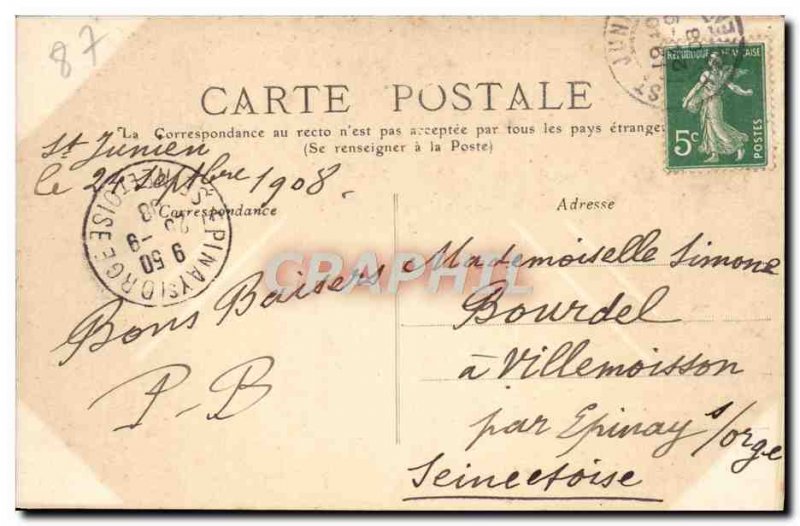 87
CARTE POSTALE
La Correspondance au recto n'est pas acceptée par tous les pays étrange
(Se renseigner à la Poste)
RÉPUBLIQUE FRANÇAISE
5c
POSTES
St Junien
le 24 Septbre 1908.
Correspondance
Adresse
EPINAY S/ ORGE
OISE
9 50
-9
08
ST JUN
CPRAPHIL
Bons Baisers
P-B
Mademoiselle Simone
Bourdel
à Villemoisson
par Epinay s/orge
Seineetoise